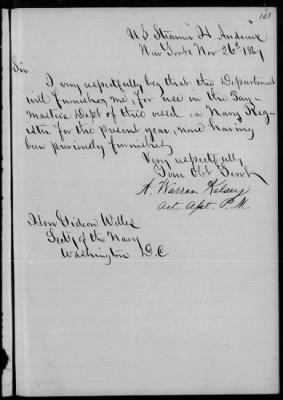 125
U S Steamer H. Andrew
New York Nov 26th 1861
Sir
I very respectfully beg that the Department
will furnish me, for use in the Pay-
master's Dept of this vessel, a Navy Reg-
ister for the present year, none having
been previously furnished
Very respectfully
Your Obt Servt
A. Warren Kelsey
Act Asst. P. M.
Hon Gideon Welles
Secty of the Navy
Washington D.C